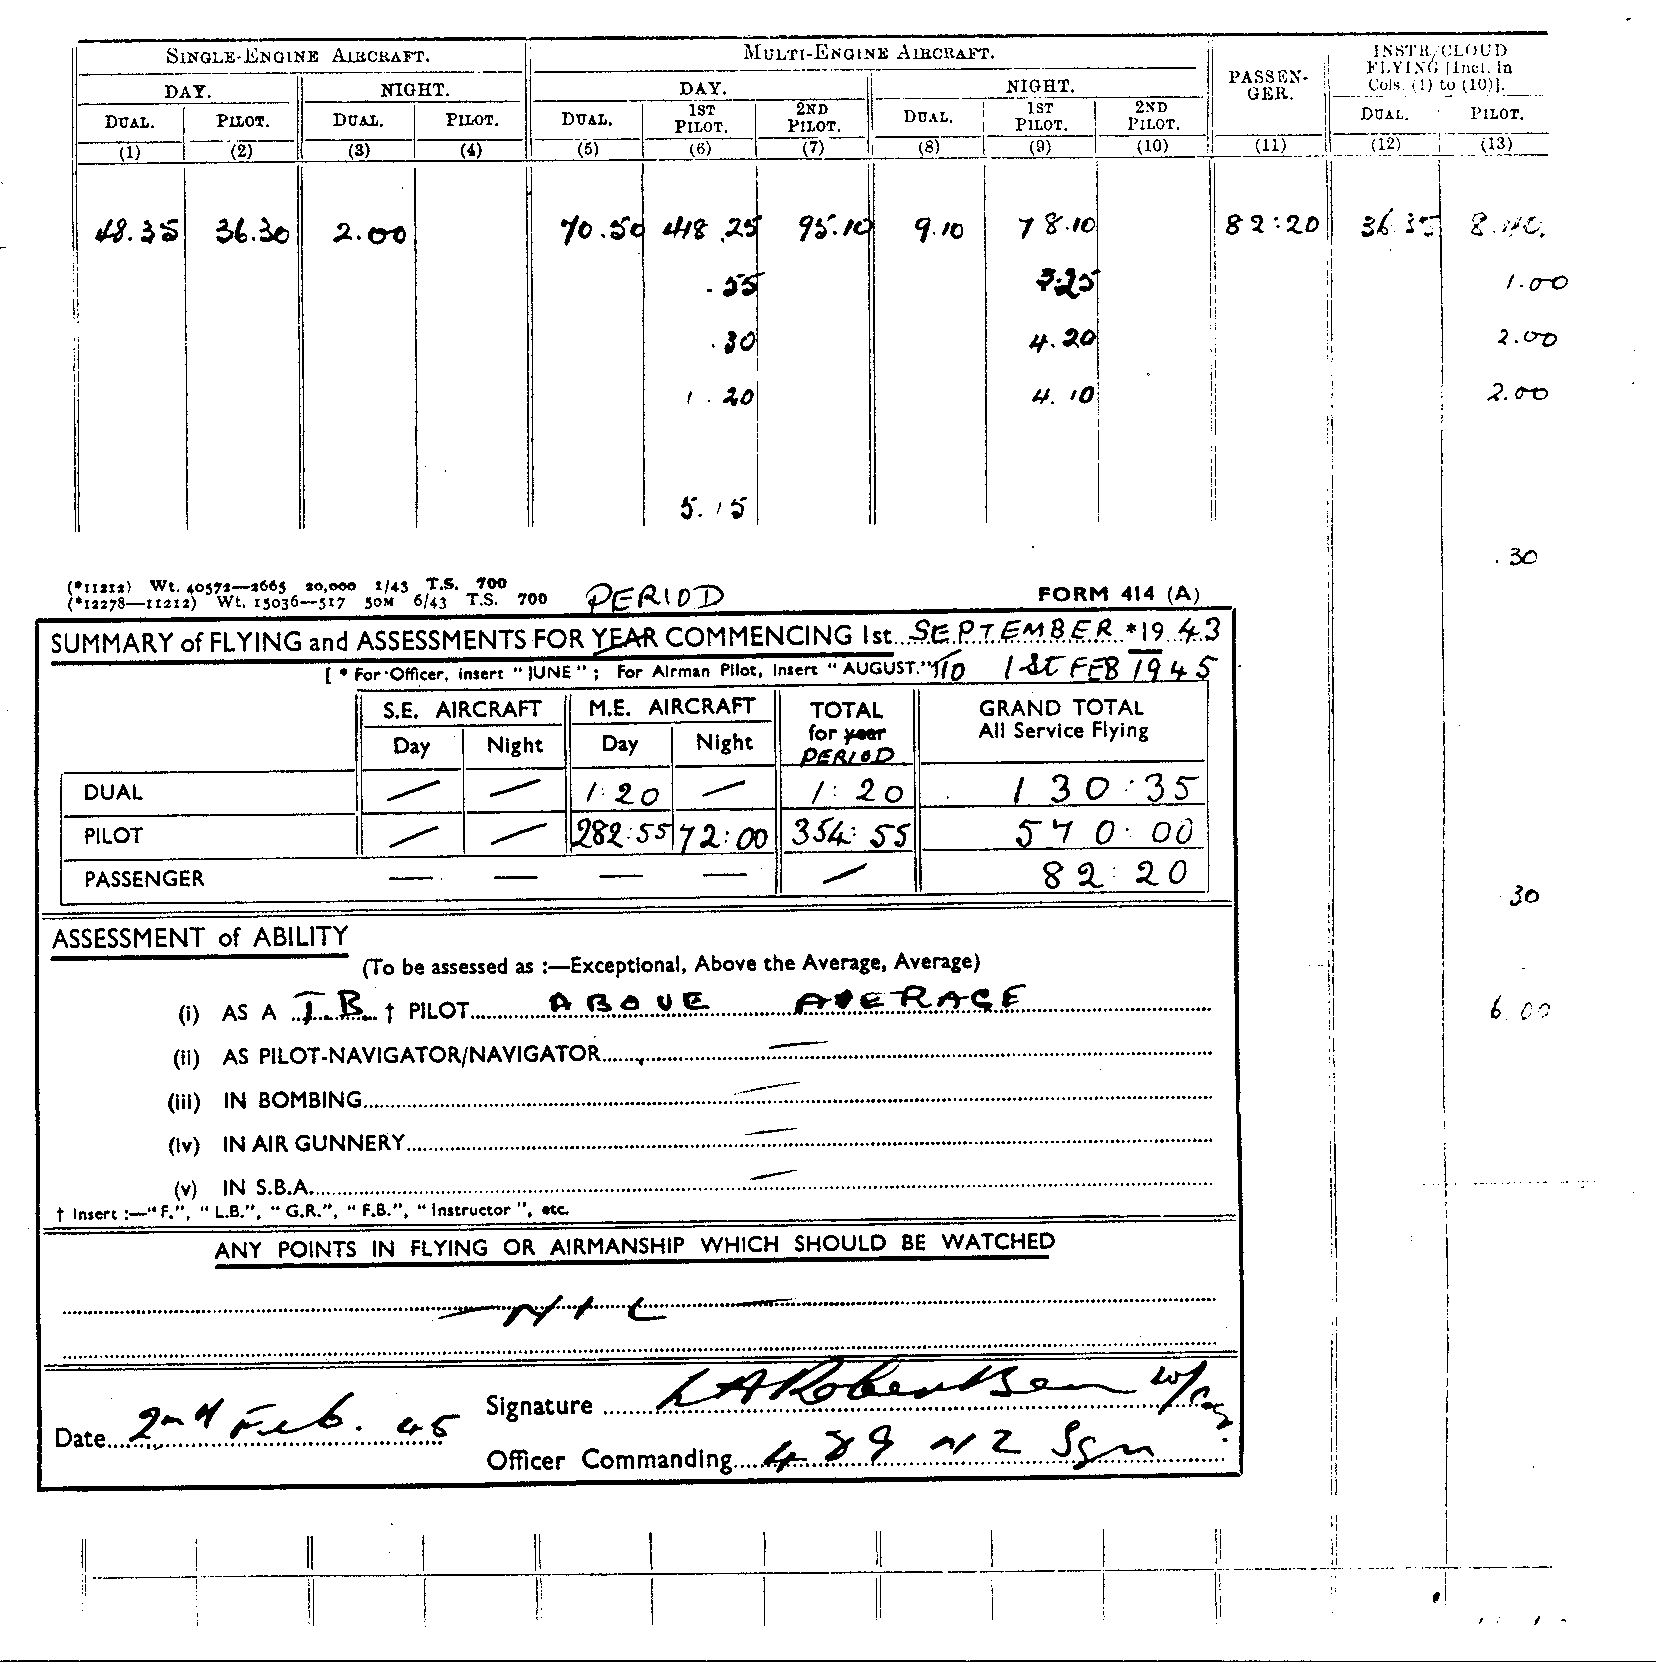 SINGLE-ENGINE AIRCRAFT. MULTI-ENGINE AIRCRAFT. PASSEN-GER. INSTR/CLOUD FLYING [Incl. in Cols. (1) to (10)].
DAY. NIGHT. DAY. NIGHT.
DUAL. PILOT. DUAL. PILOT. DUAL. 1ST PILOT. 2ND PILOT. DUAL. 1ST PILOT. 2ND PILOT. DUAL. PILOT.
(1) (2) (3) (4) (5) (6) (7) (8) (9) (10) (11) (12) (13)
48.35 36.30 2.00 70.50 418.25 95.10 9.10 78.10 82:20 36.35 8.40.
.55 3.25 1.00
.30 4.20 2.00
1.20 4.10 2.00
5.15
.30
(*11212) Wt. 40572—2665 20,000 2/43 T.S. 700
(*12278—11212) Wt. 15036—517 50M 6/43 T.S. 700 PERIOD FORM 414 (A)
SUMMARY of FLYING and ASSESSMENTS FOR YEAR COMMENCING 1st SEPTEMBER *19 43
[ * For Officer, insert "JUNE"; For Airman Pilot, insert "AUGUST." TO 1ST FEB 1945
S.E. AIRCRAFT M.E. AIRCRAFT TOTAL for year PERIOD GRAND TOTAL All Service Flying
Day Night Day Night
DUAL — — 1:20 — 1:20 130:35
PILOT — — 282:55 72:00 354:55 570:00
PASSENGER — — — — — 82:20
30
ASSESSMENT of ABILITY
(To be assessed as :—Exceptional, Above the Average, Average)
(i) AS A T.B. † PILOT ABOVE AVERAGE
6.00
(ii) AS PILOT-NAVIGATOR/NAVIGATOR —
(iii) IN BOMBING —
(iv) IN AIR GUNNERY —
(v) IN S.B.A. —
† Insert :—"F.", "L.B.", "G.R.", "F.B.", "Instructor", etc.
ANY POINTS IN FLYING OR AIRMANSHIP WHICH SHOULD BE WATCHED
— NIL —
Signature LA Robertson W/Cdr
Date 2nd Feb. 45
Officer Commanding 489 NZ Sqn